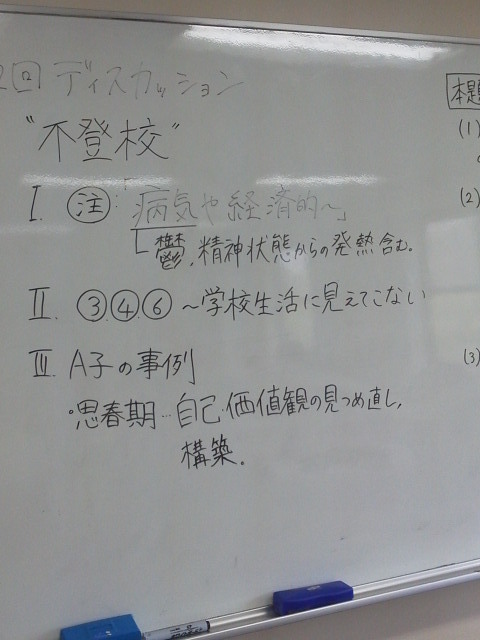 2回 ディスカッション
"不登校"
I. 注:「病気や経済的〜」
鬱,精神状態からの発熱含む。
II. ③.④.⑥ 〜学校生活に見えてこない
III. A子の事例
・思春期…自己・価値観の見つめ直し,
構築。
本題
(1)
(2)
(3)